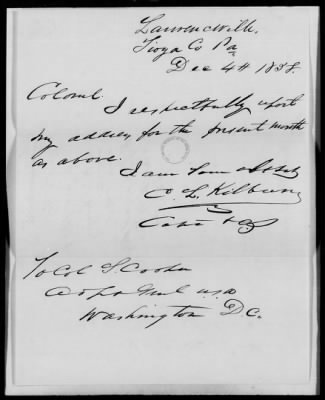 Lawrenceville,
Tioga Co Pa
Dec 4th 1858.
Colonel
I respectfully report
my address for the present month
as above.
I am Your
C. L. Kilburn
Capt
To Col S. Cooper
U.S.A
Washington D.C.